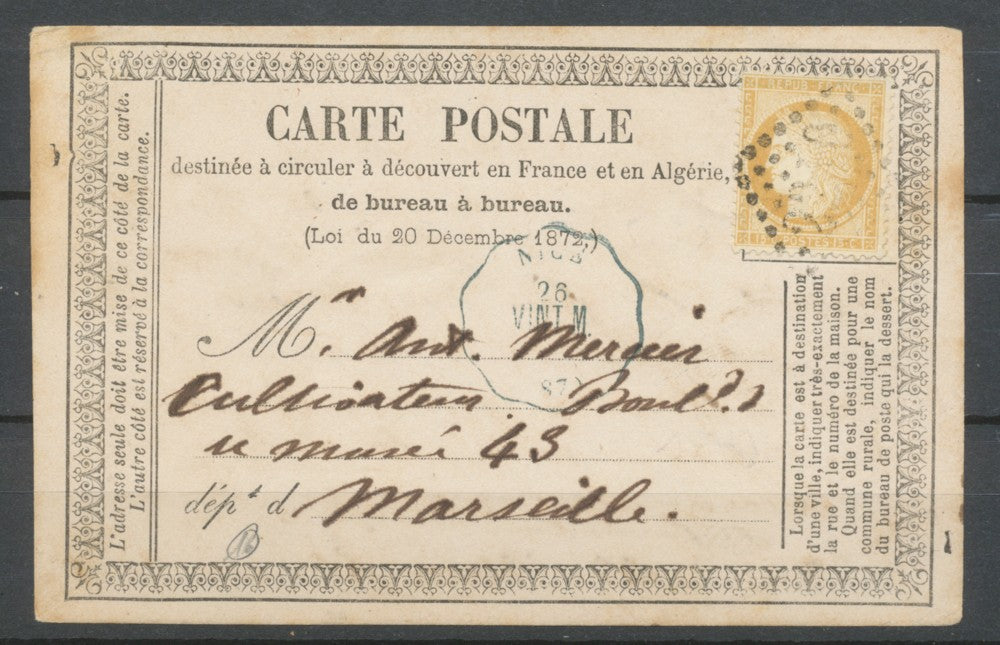 CARTE POSTALE
destinée à circuler à découvert en France et en Algérie,
de bureau à bureau.
(Loi du 20 Décembre 1872.)
REPUB. FRANC.
15 POSTES 15 C
NICE
26
VINT.M.
187
M. Ant. Mercier
Cultivateur Boul.d
du musée 43
dép.t d Marseille.
L'adresse seule doit être mise de ce côté de la carte.
L'autre côté est réservé à la correspondance.
Lorsque la carte est à destination
d'une ville, indiquer très-exactement
la rue et le numéro de la maison.
Quand elle est destinée pour une
commune rurale, indiquer le nom
du bureau de poste qui la dessert.